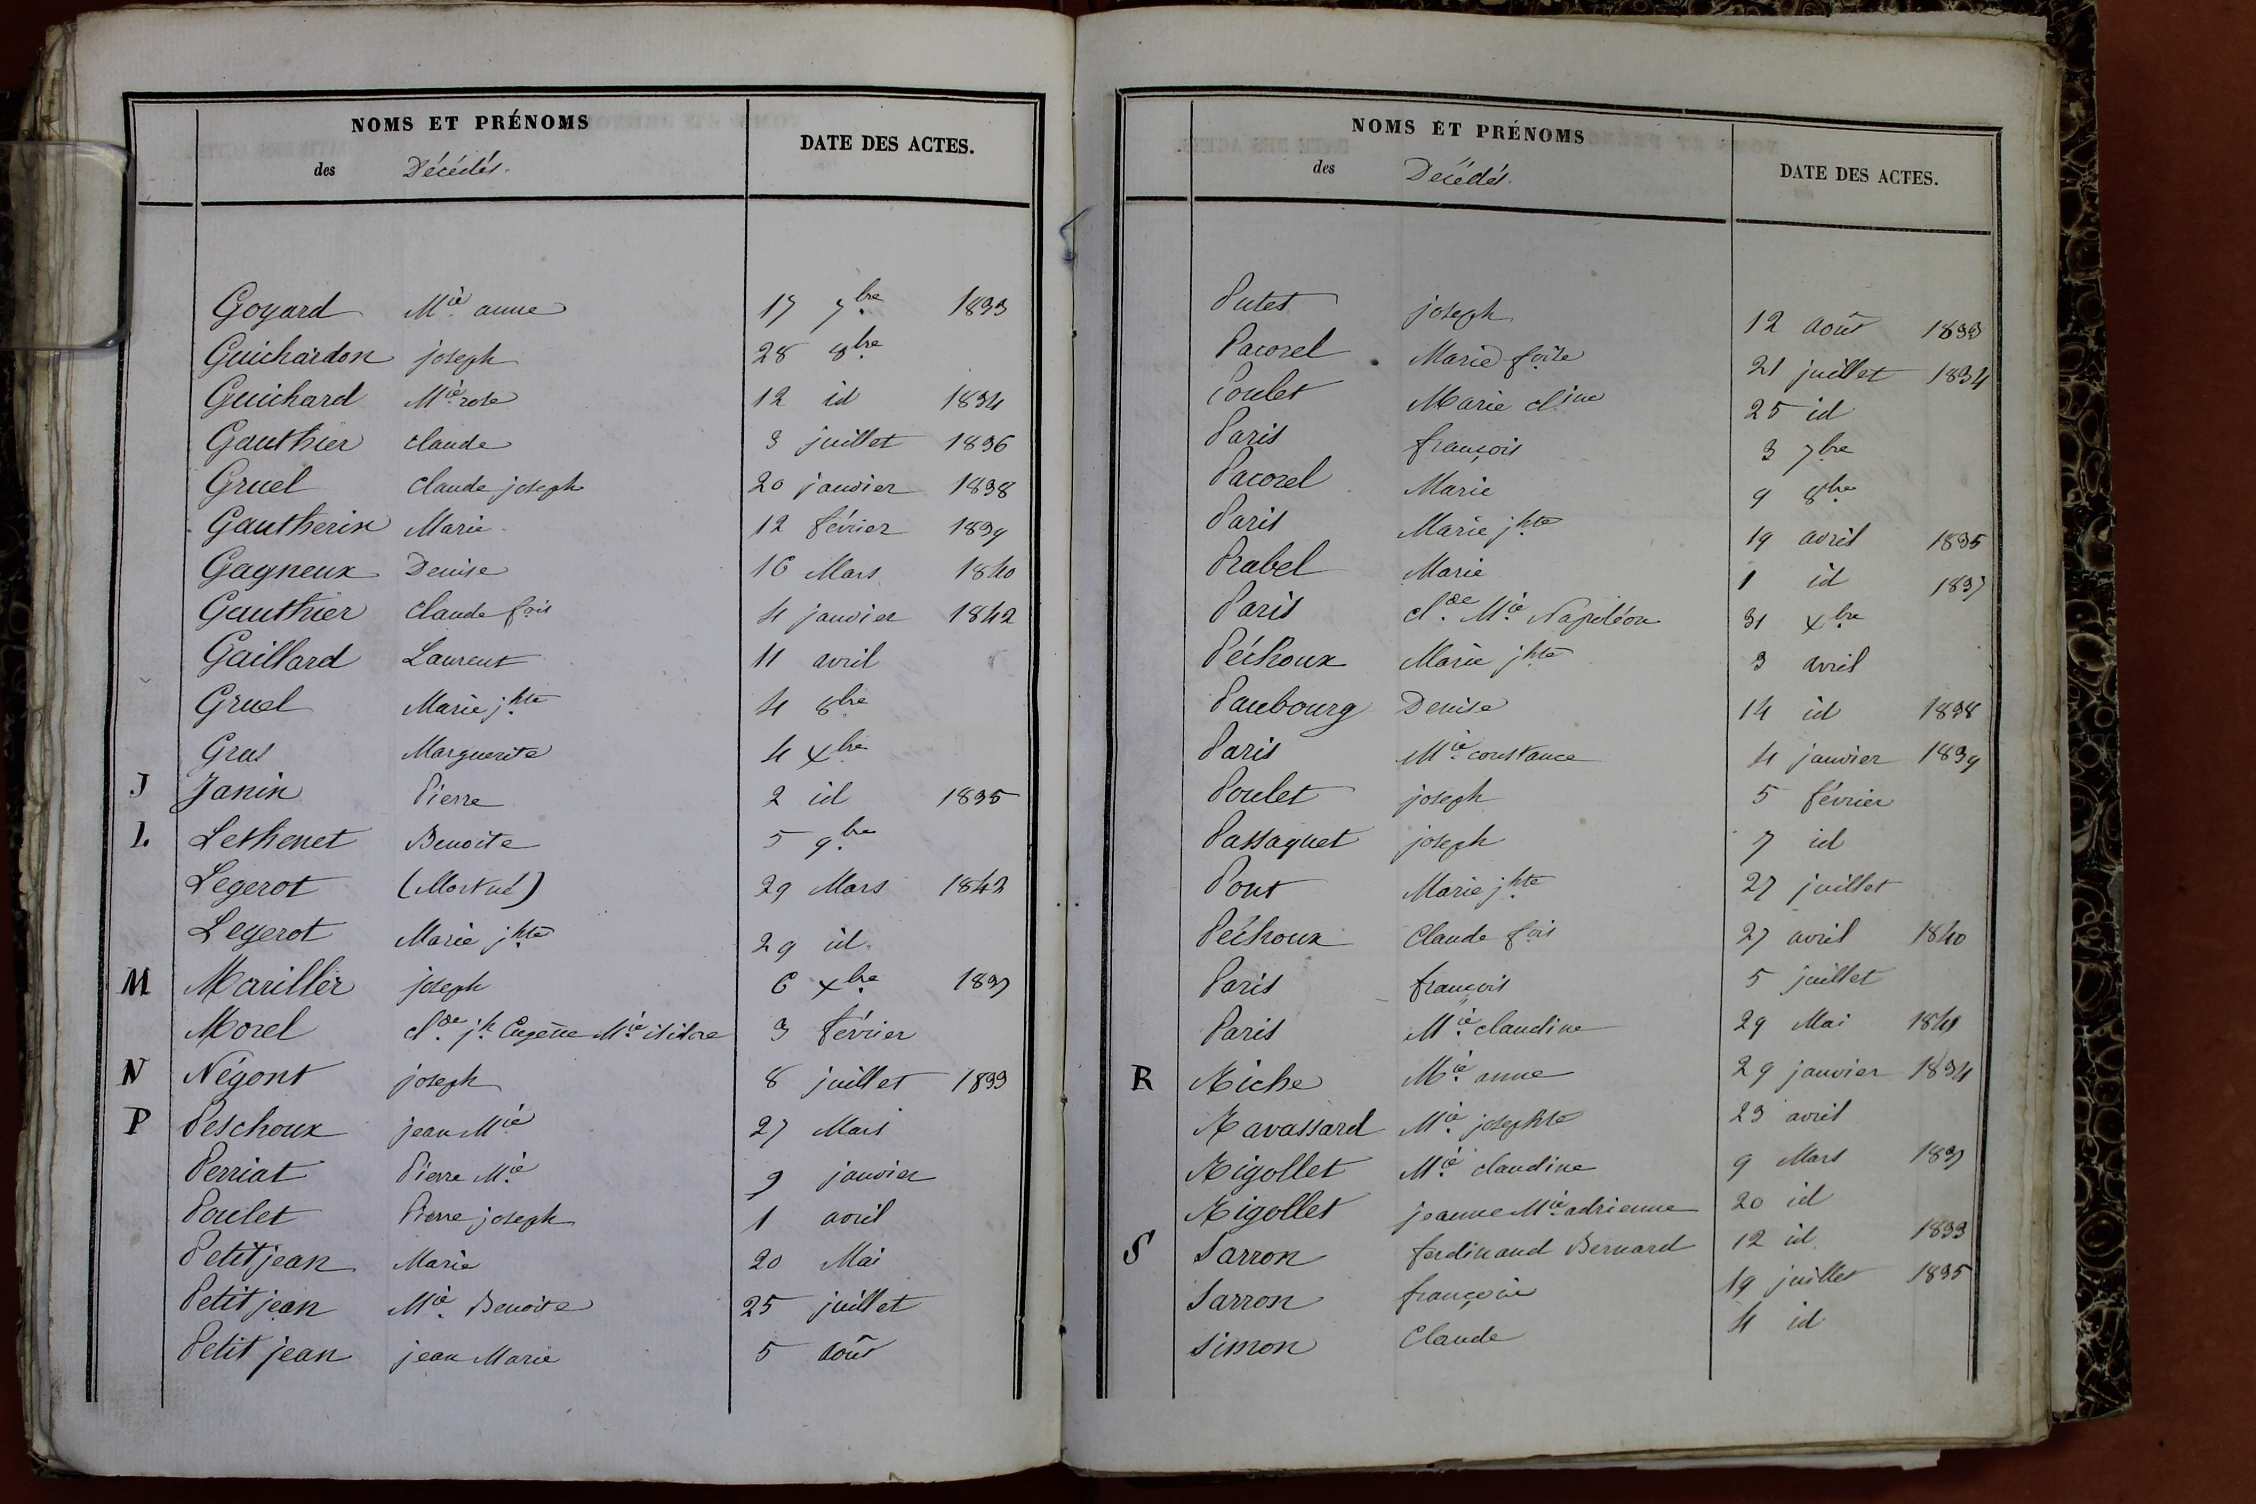 NOMS ET PRÉNOMS
des Décédés.
DATE DES ACTES.
Goyard Mie anne 17 7bre 1833
Guichardon joseph 28 8bre
Guichard Mie rose 12 id 1834
Gauthier claude 3 juillet 1836
Gruel claude joseph 20 janvier 1838
Gautherin Marie 12 février 1839
Gagneux Denise 16 Mars 1840
Gauthier claude fois 4 janvier 1842
Gaillard Laurent 11 avril
Gruel Marie jhte 4 8bre
Gras Marguerite 4 xbre
J Janin Pierre 2 id 1835
L Lethenet Benoite 5 9bre
Legerot (Mort né) 29 Mars 1842
Legerot Marie jhte 29 id
M Mariller joseph 6 xbre 1837
Morel Cl.de jh Eugène Mie isidore 3 février
N Négont joseph 8 juillet 1833
P Peschoux jean Mie 27 Mars
Perriat Pierre Mie 9 janvier
Poulet Pierre joseph 1 avril
Petitjean Marie 20 Mai
Petit jean Mie Benoite 25 juillet
Petit jean jean Marie 5 août
NOMS ET PRÉNOMS
des Décédés.
DATE DES ACTES.
Putet joseph 12 août 1833
Pacorel Marie foise 21 juillet 1834
Poulet Marie cline 25 id
Paris françois 3 7bre
Pacorel Marie 9 8bre
Paris Marie jhte 19 avril 1835
Prabel Marie 1 id 1837
Paris Cl.de Mie Napoléon 31 xbre
Péchoux Marie jhte 3 avril
Paubourg Denise 14 id 1838
Paris Mie constance 4 janvier 1839
Poulet joseph 5 février
Passaquet joseph 7 id
Pont Marie jhte 27 juillet
Péchoux Claude fois 27 avril 1840
Paris françois 5 juillet
Paris Mie claudine 29 Mai 1841
R Riche Mie anne 29 janvier 1834
Ravassard Mie josephte 23 avril
Rigollet Mie claudine 9 Mars 1837
Rigollet jeanne Mie adrienne 20 id
S Sarron ferdinand Bernard 12 id 1833
Sarron 19 juillet 1835
Simon Claude 4 id